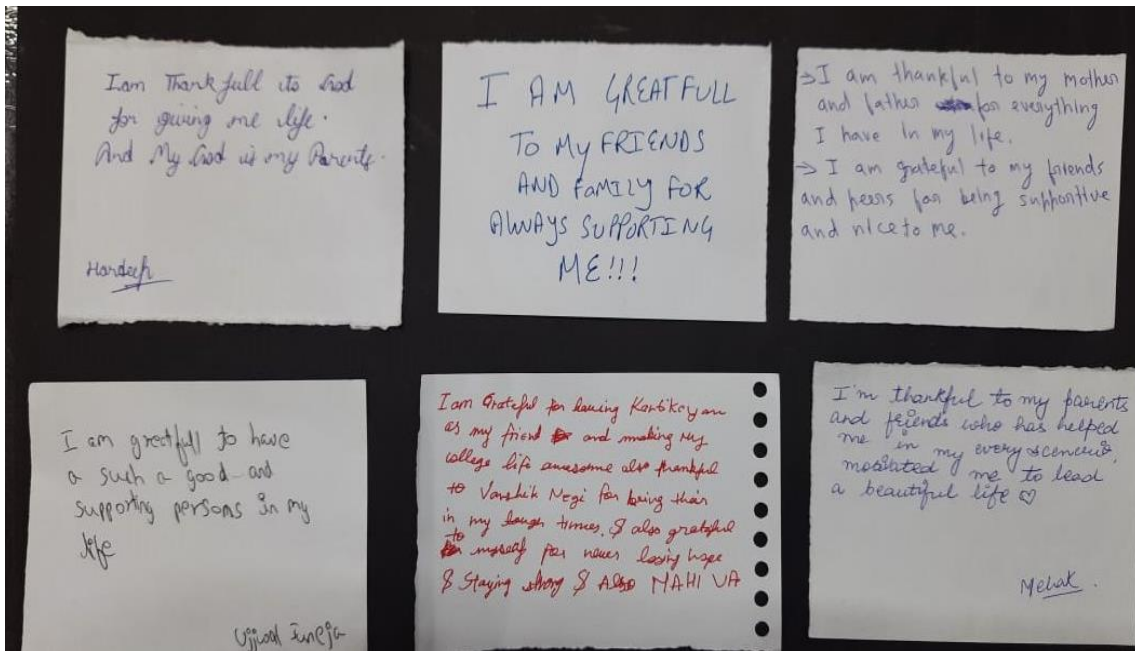 Iam Thankfull to God
for giving me life.
And My God is my Parents.
Hardeep
I AM GREATFULL
TO MY FRIENDS
AND FAMILY FOR
ALWAYS SUPPORTING
ME!!!
→ I am thankful to my mother
and father for everything
I have In my life.
→ I am grateful to my friends
and peers for being supportive
and nice to me.
I am greatfull to have
a such a good and
supporting persons in my
life
Ujjwal Juneja
I am Grateful for having Kartikeyan
as my friend and making my
college life awesome also thankful
to Vanshik Negi for being their
in my tough times. & also grateful
to myself for never losing hope
& Staying strong & Also MAHI VA
I'm thankful to my parents
and friends who has helped
me in my every
motivated me to lead
a beautiful life ♡
Mehak.